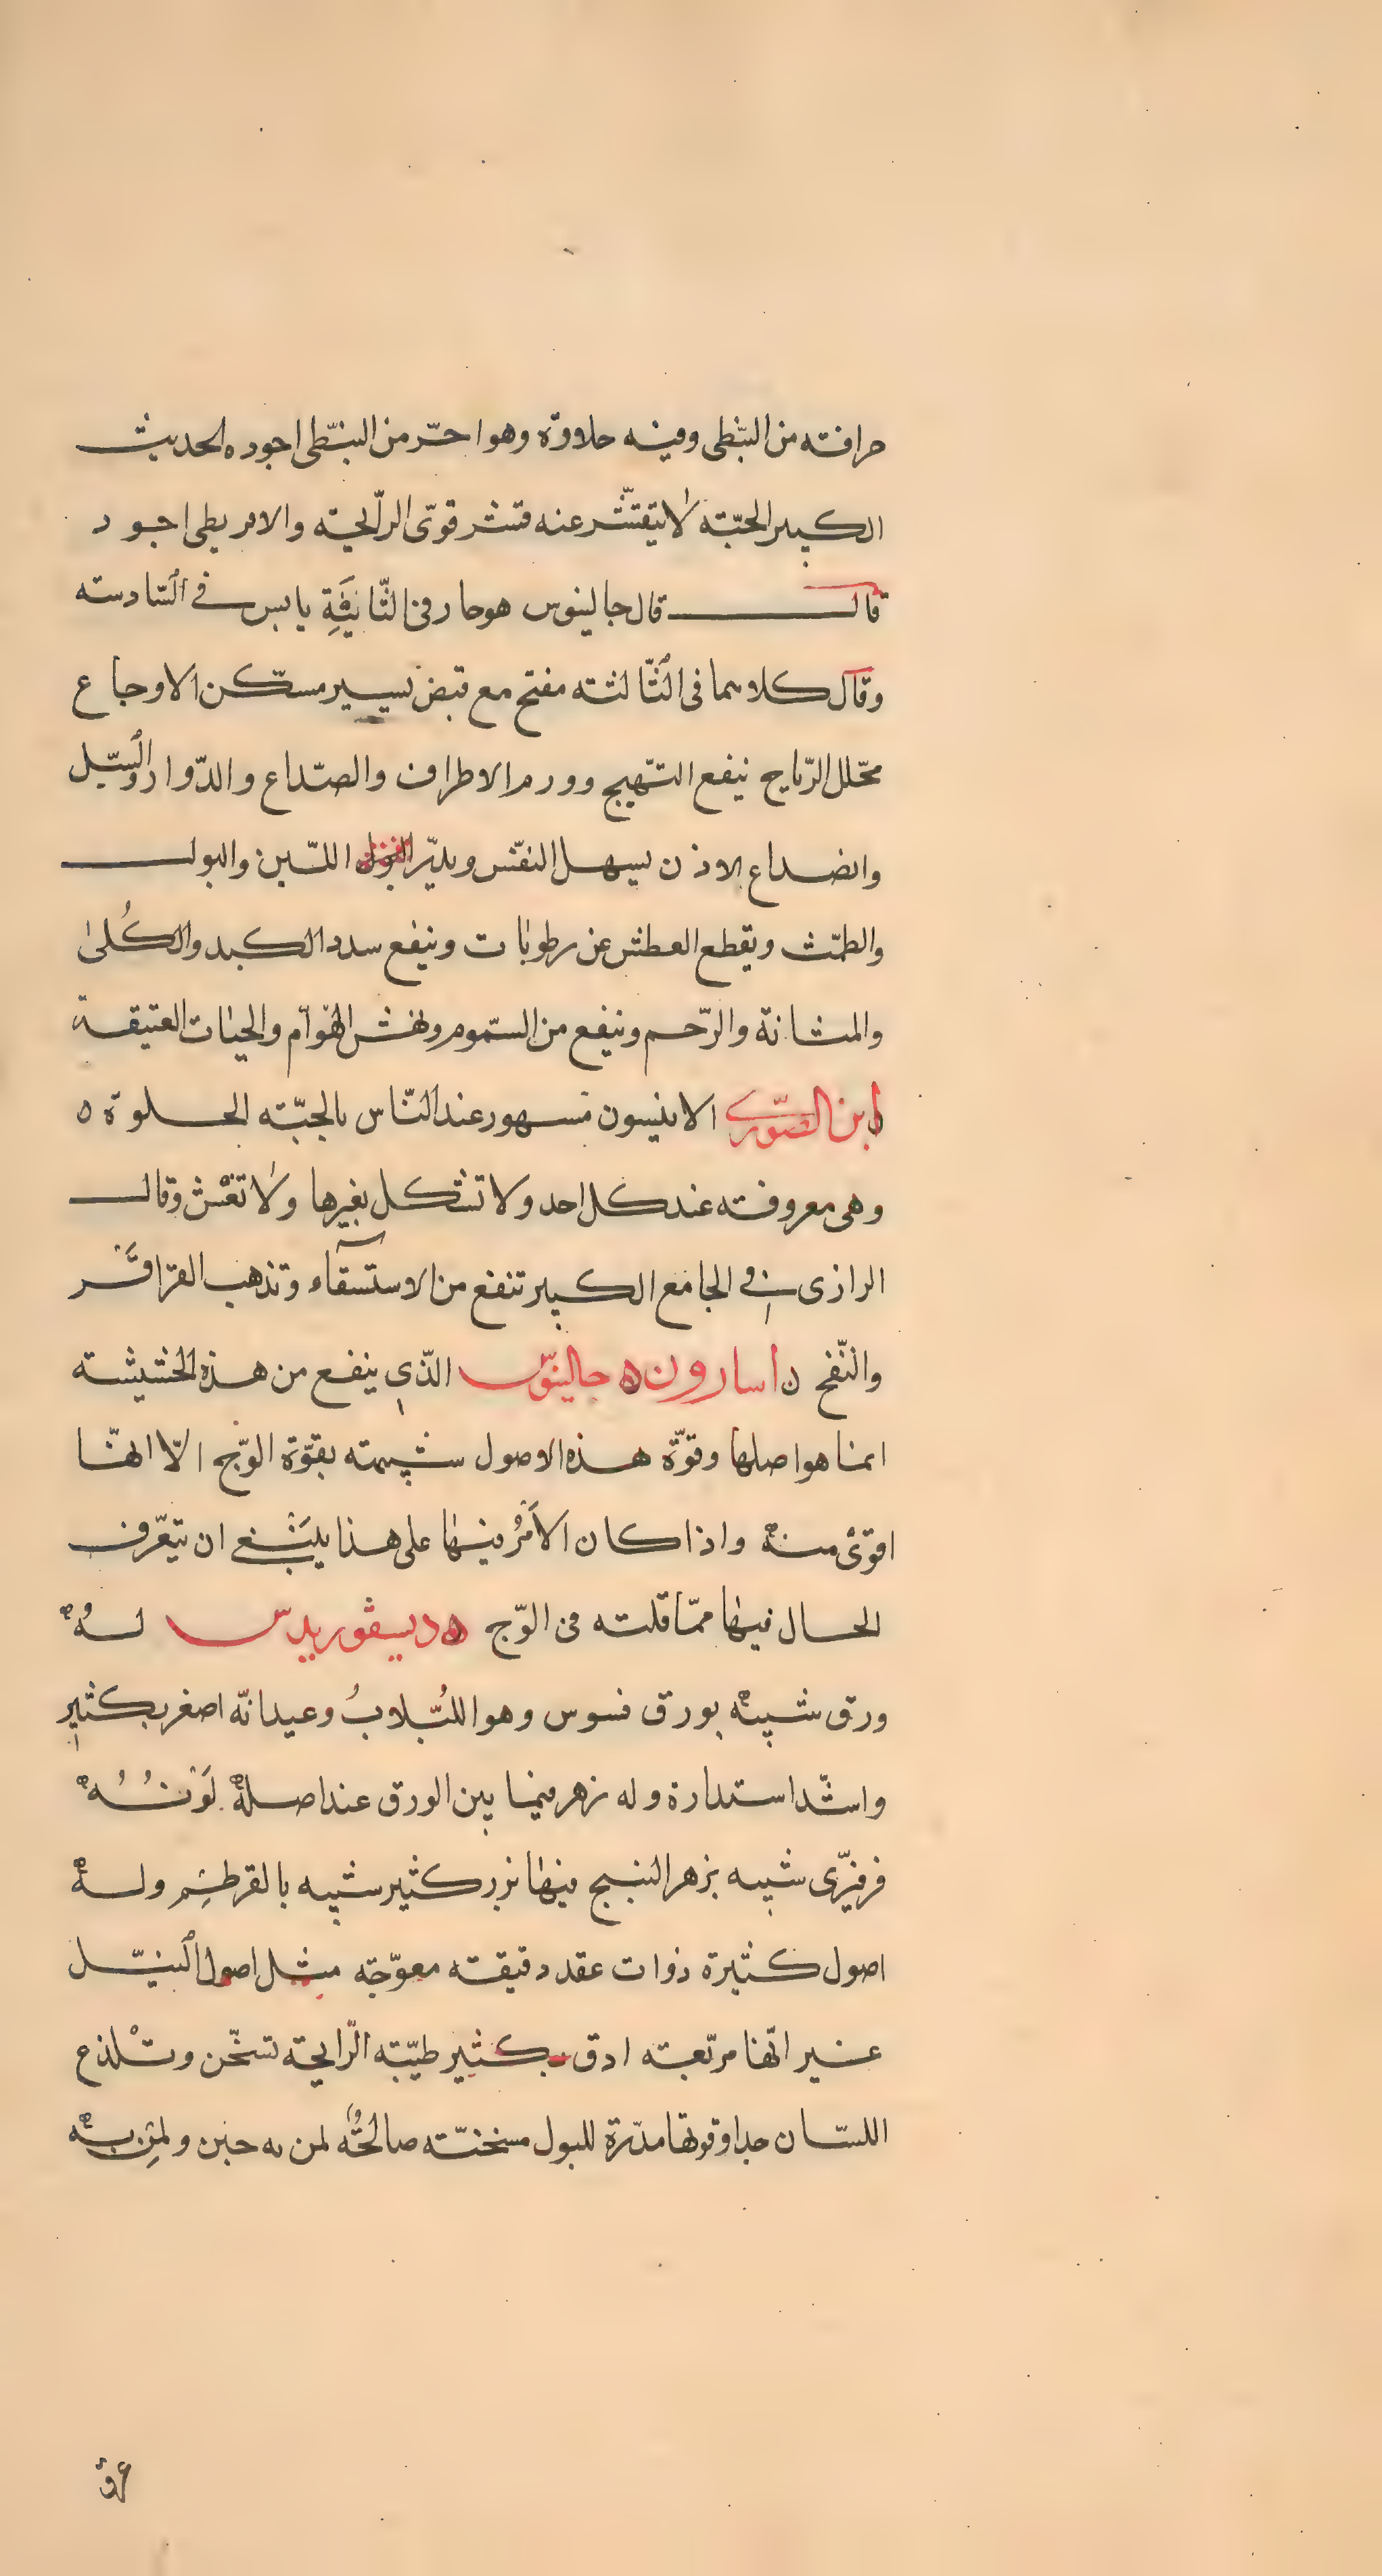 حرافته من النبّطى وفيه حلاوة وهو احرّ من النبّطى اجوده الحديث
الكبير الحبّة لا يتقشّر عنه قشر قوىّ الرايحة والاقريطى اجود
قال قال جالينوس هو حار فى الثّانية يابس فى السّادسة
وقال كلاهما فى الثّالثة مفتح مع قبض يسير مسكّن الاوجاع
محّلل الرّياح ينفع التّهيج وورم الاطراف والصّداع والدّوار والسّبل
وانصداع الاذن يسهل النفّس ويدرّ اللّبن والبول
والطمّث ويقطع العطش عن رطوبات وينفع سدد الكبد والكُلى
والمثانة والرّحم وينفع من السّموم ونهش الهوآم والحيات العتيقة
ابن الصّورى الانيسون مسهور عند النّاس بالحبّة الحلوة ه
وهى معروفة عند كل احد ولا تشكل بغيرها ولا تغش وقال
الرازى فى الجامع الكبير تنفع من الاستسقآء وتذهب القراقر
والنّفخ ن اسارون ه جالينوّس الذّى ينفع من هذه الحشيشة
انما هو اصلها وقوّة هذه الاصول شبيهة بقوّة الوّج الاّ انهّا
اقوىْ منه واذا كان الاَمْرُ فيها على هذا ينبَغى ان يتعّرف
الحال فيها ممّا قلته فى الوّج ه ديسقوريدّس لهُ
ورق شبيه بورق قسوس وهو اللُبّلابُ وعيدانّه اصغر بكثيرِ
واشّد استدارة وله زهر فيما بين الورق عند اصله لَوْنُهُ
فرفيرّى شبيه بزهر البنج فيها بزر كثير شبيه بالقرطِم وله
اصول كثيرة ذوات عقد دقيقة معوّجة مثل اصول الثيّل
غير انّها مرتّعبة ادق بكثير طيّبة الرّايحة تسخّن وتلْذع
اللسّان جدا وقوتها مدّرة للبول مسخنّة صالحُةُ لمن به حبن ولمِن به